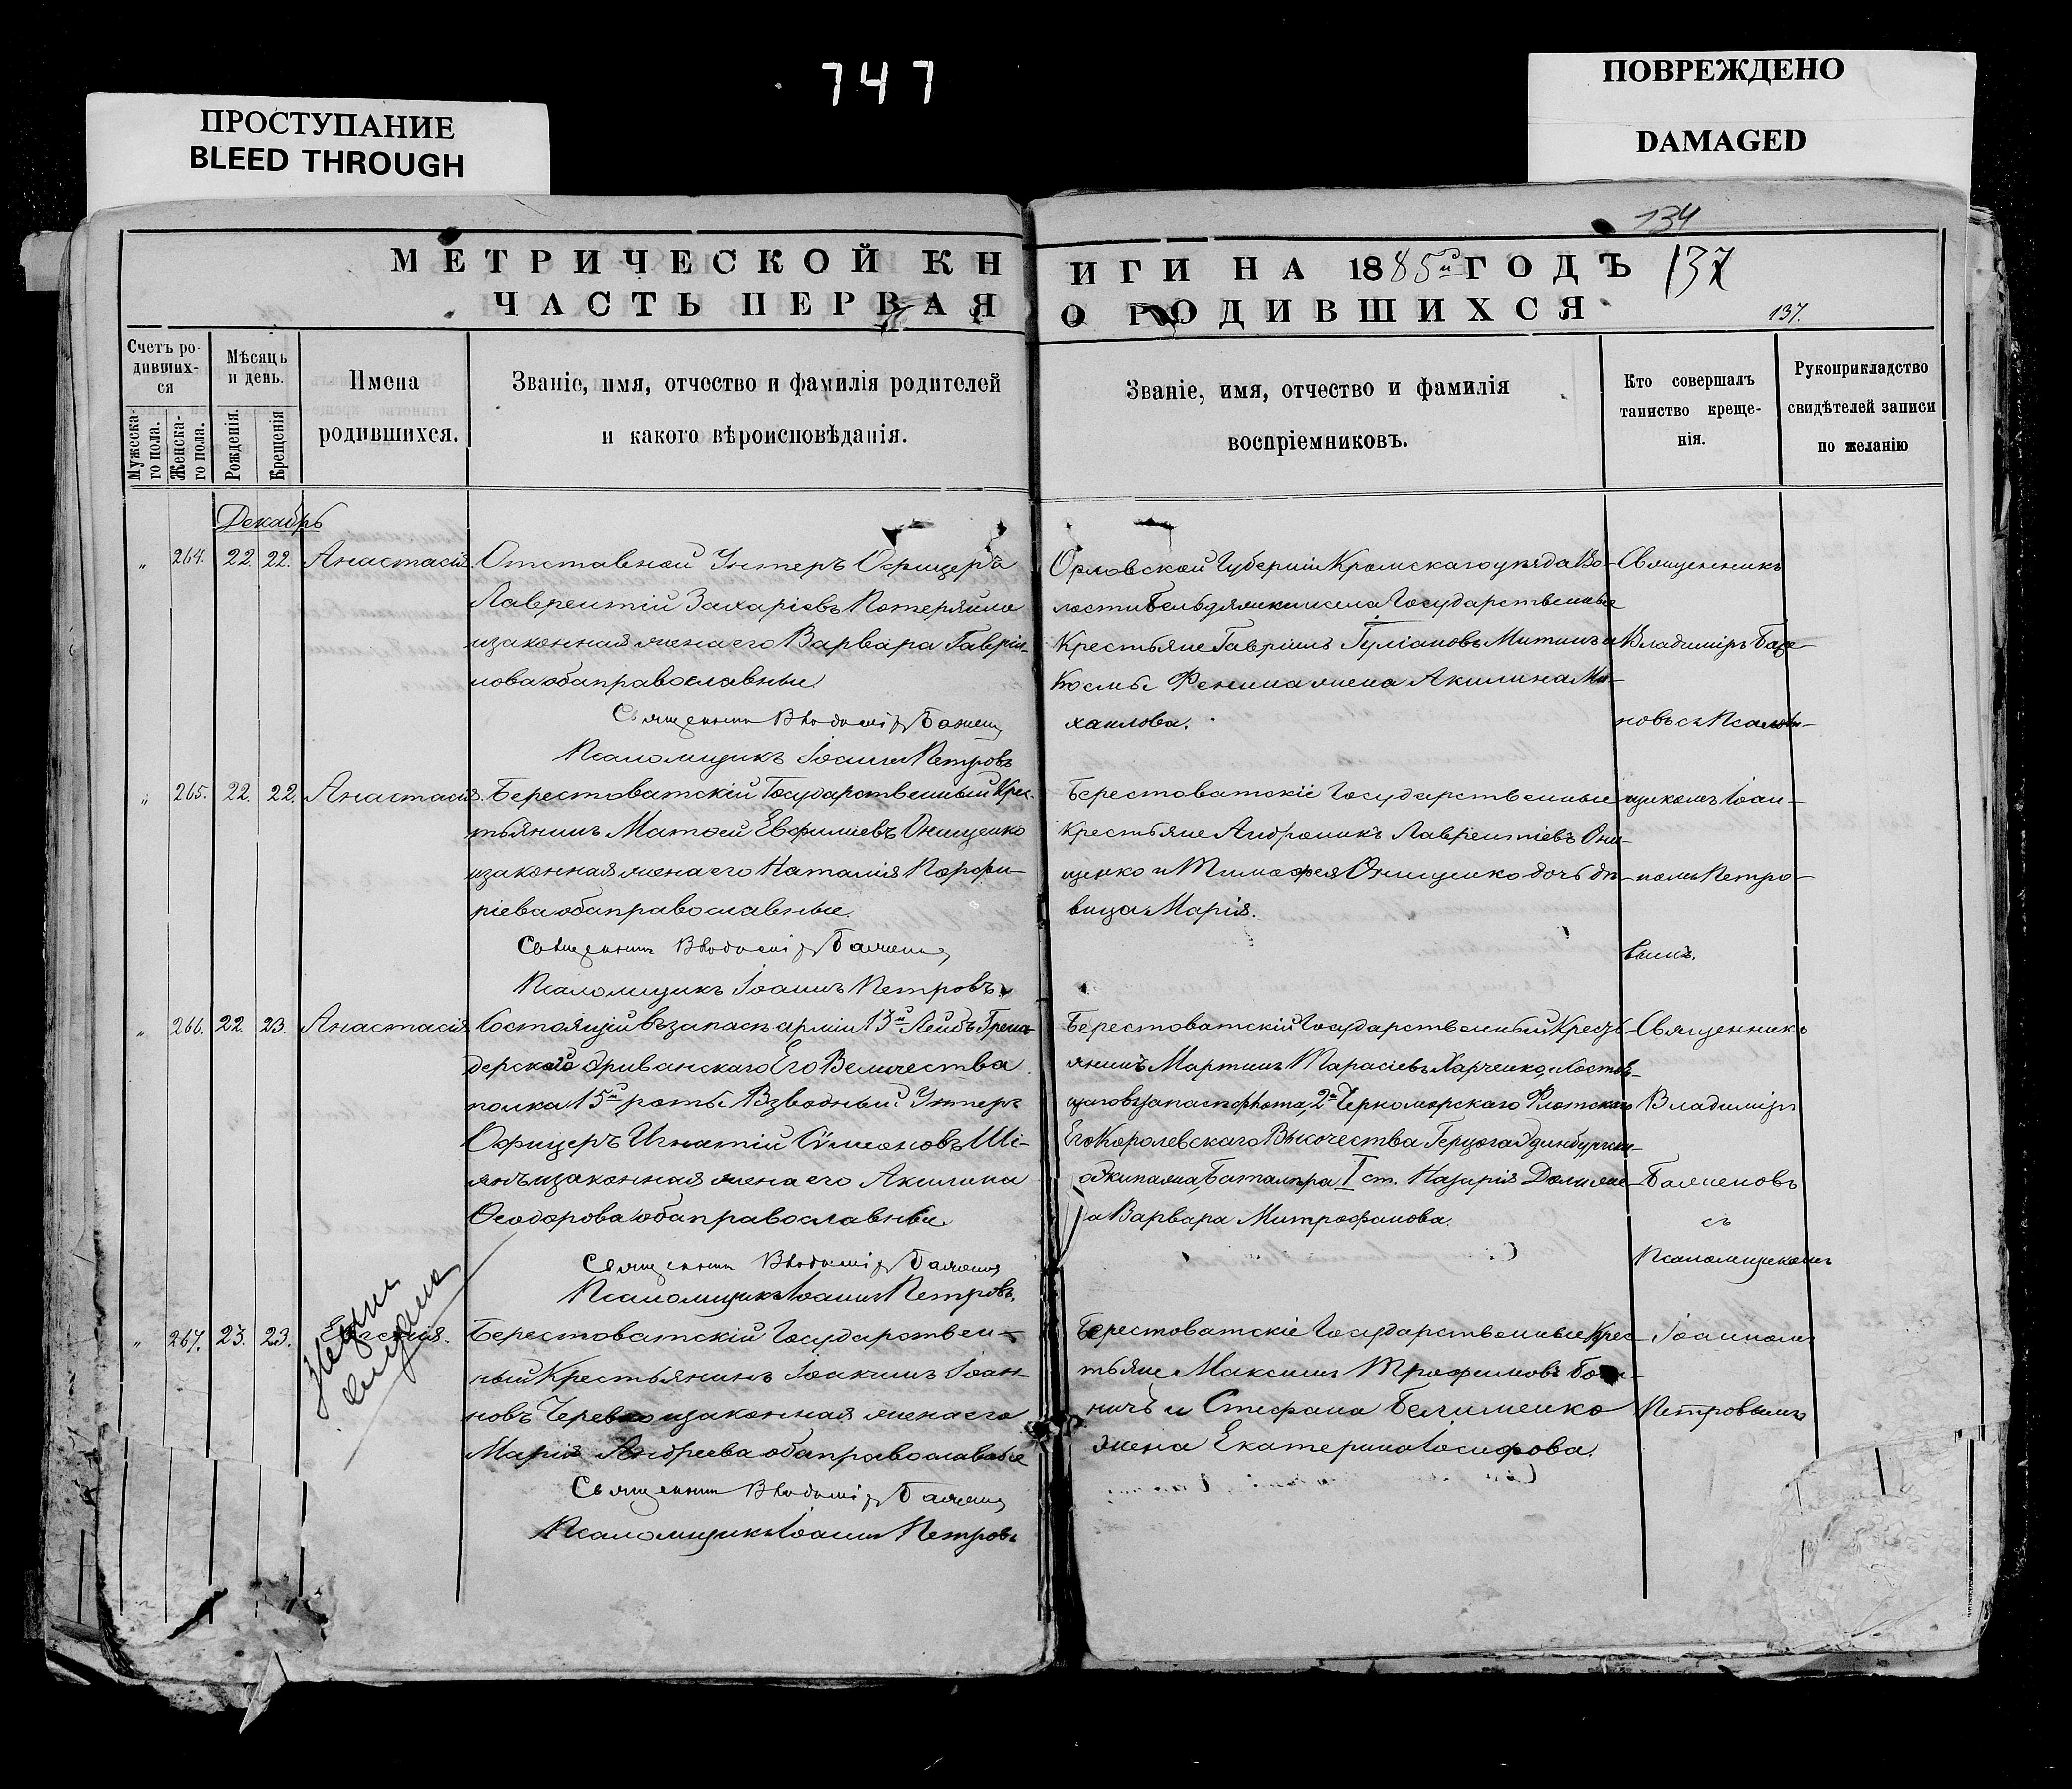 747
ПРОСТУПАНИЕ
BLEED THROUGH
ПОВРЕЖДЕНО
DAMAGED
134
МЕТРИЧЕСКОЙ КНИГИ НА 1885й ГОДЪ 137
ЧАСТЬ ПЕРВАЯ О РОДИВШИХСЯ
137.
Счетъ родившихся
Мужескаго пола.
Женскаго пола.
Мѣсяцъ и день.
Рожденія.
Крещенія
Имена родившихся.
Званіе, имя, отчество и фамилія родителей
и какого вѣроисповѣданія.
Званіе, имя, отчество и фамилія
воспріемниковъ.
Кто совершалъ
таинство креще-
нія.
Рукоприкладство
свидѣтелей записи
по желанію
Декабрь
" 264. 22. 22. Анастасія.
Отставной Унтеръ Офицеръ
Лаврентій Захаріевъ Потеряйло
изаконная жена его Варвара Гавріи-
лова оба православные.
Священник Владимір Баженов
Псаломщикъ Іоаннъ Петровъ
Орловской Губерніи Кромскаго уѣзда Во-
лости села Государственные
Крестьяне Гавріилъ Митинъ и
Космы жена Акилина Ми-
хаилова.
Священникъ
Владиміръ Баже-
новъ съ Псалом-
щикомъ Іоан-
номъ Петро-
вымъ.
" 265. 22. 22. Анастасія.
Берестоватскій Государственный Крес-
тьянинъ Матѳей Евфиміевъ Онищенко
изаконная жена его Наталія Порфи-
ріева оба православные.
Священник Владимір Баженов
Псаломщикъ Іоаннъ Петровъ.
Берестоватскіе Государственные
Крестьяне Андроникъ Лаврентіевъ Они-
щенко и Тимофея Онищенко дочь дѣ-
вица Марія.
" 266. 22. 23. Анастасія.
Состоящій въ запасѣ арміи 13й Лейбъ Грена-
дерскаго Эриванскаго Его Величества
полка 15й роты Взводный Унтеръ
Офицеръ Игнатій Сѵмеоновъ Ші-
янъ изаконная жена его Акилина
Ѳеодорова оба православные.
Священник Владимір Баженов
Псаломщикъ Іоаннъ Петровъ.
Берестоватскій Государственный Кресть-
янинъ Мартинъ Тарасіевъ Харченко, и Состоя-
щаго въ запасѣ флота, 2й Черноморскаго Флотскаго
Его Королевскаго Высочества Герцога Эдинбургска-
го Экипажа, I ст. Назарія
а Варвара Митрофанова.
Священникъ
Владиміръ
Баженовъ
съ
Псаломщикомъ
Іоанномъ
Петровымъ
" 267. 23. 23. Евгенія.
Берестоватскій Государствен-
ный Крестьянинъ Іоакимъ Іоан-
новъ изаконная жена его
Марія Андреева оба православные
Священник Владимір Баженов
Псаломщикъ Іоаннъ Петровъ
Берестоватскіе Государственные Крес-
тьяне Максимъ Трофимовъ
и Стефана Белименко
жена Екатерина Іосифова.